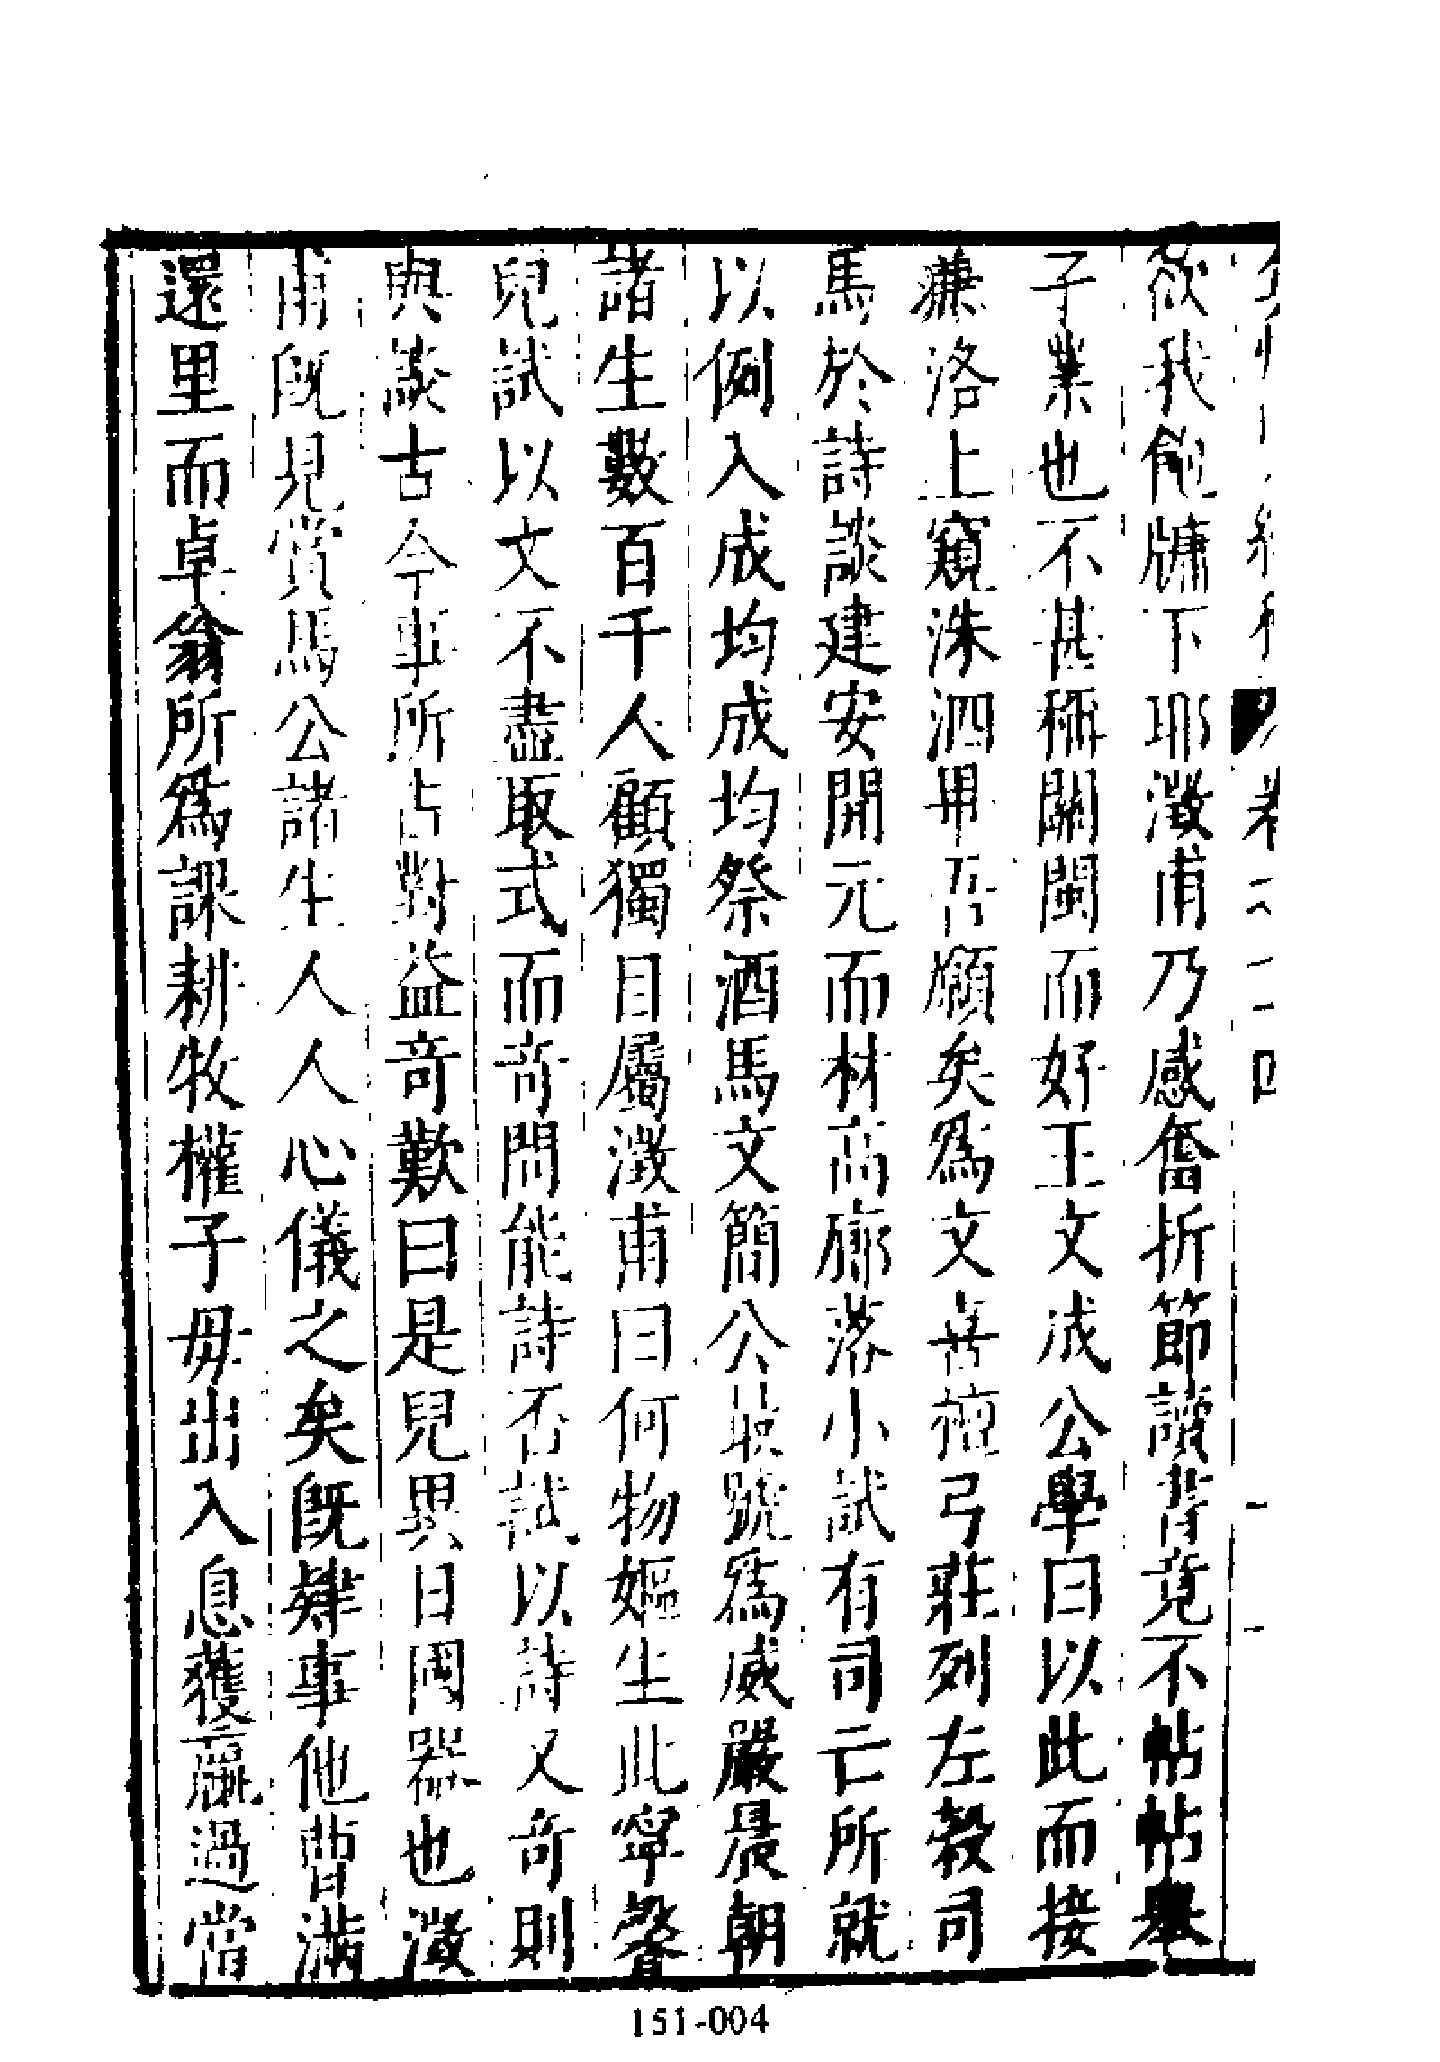 欲我飽牗下耶澂甫乃感奮折節讀書竟不帖帖舉
子業也不甚稱關閩而好王文成公學曰以此而接
濂洛上窺洙泗畢吾願矣爲文喜檀弓莊列左穀司
馬於詩談建安開元而材高廓落小試有司亡所就
以例入成均成均祭酒馬文簡公最號爲威嚴晨朝
諸生數百千人顧獨目屬澂甫曰何物嫗生此寧馨
兒試以文不盡取式而奇問能詩否試以詩又奇則
與談古今事所占對益奇歎曰是兒異日國器也澂
甫既見賞馬公諸生人人心儀之矣既肄事他曹滿
還里而卓翁所爲課耕牧權子毋出入息獲羸過當
卷之二十四
151-004